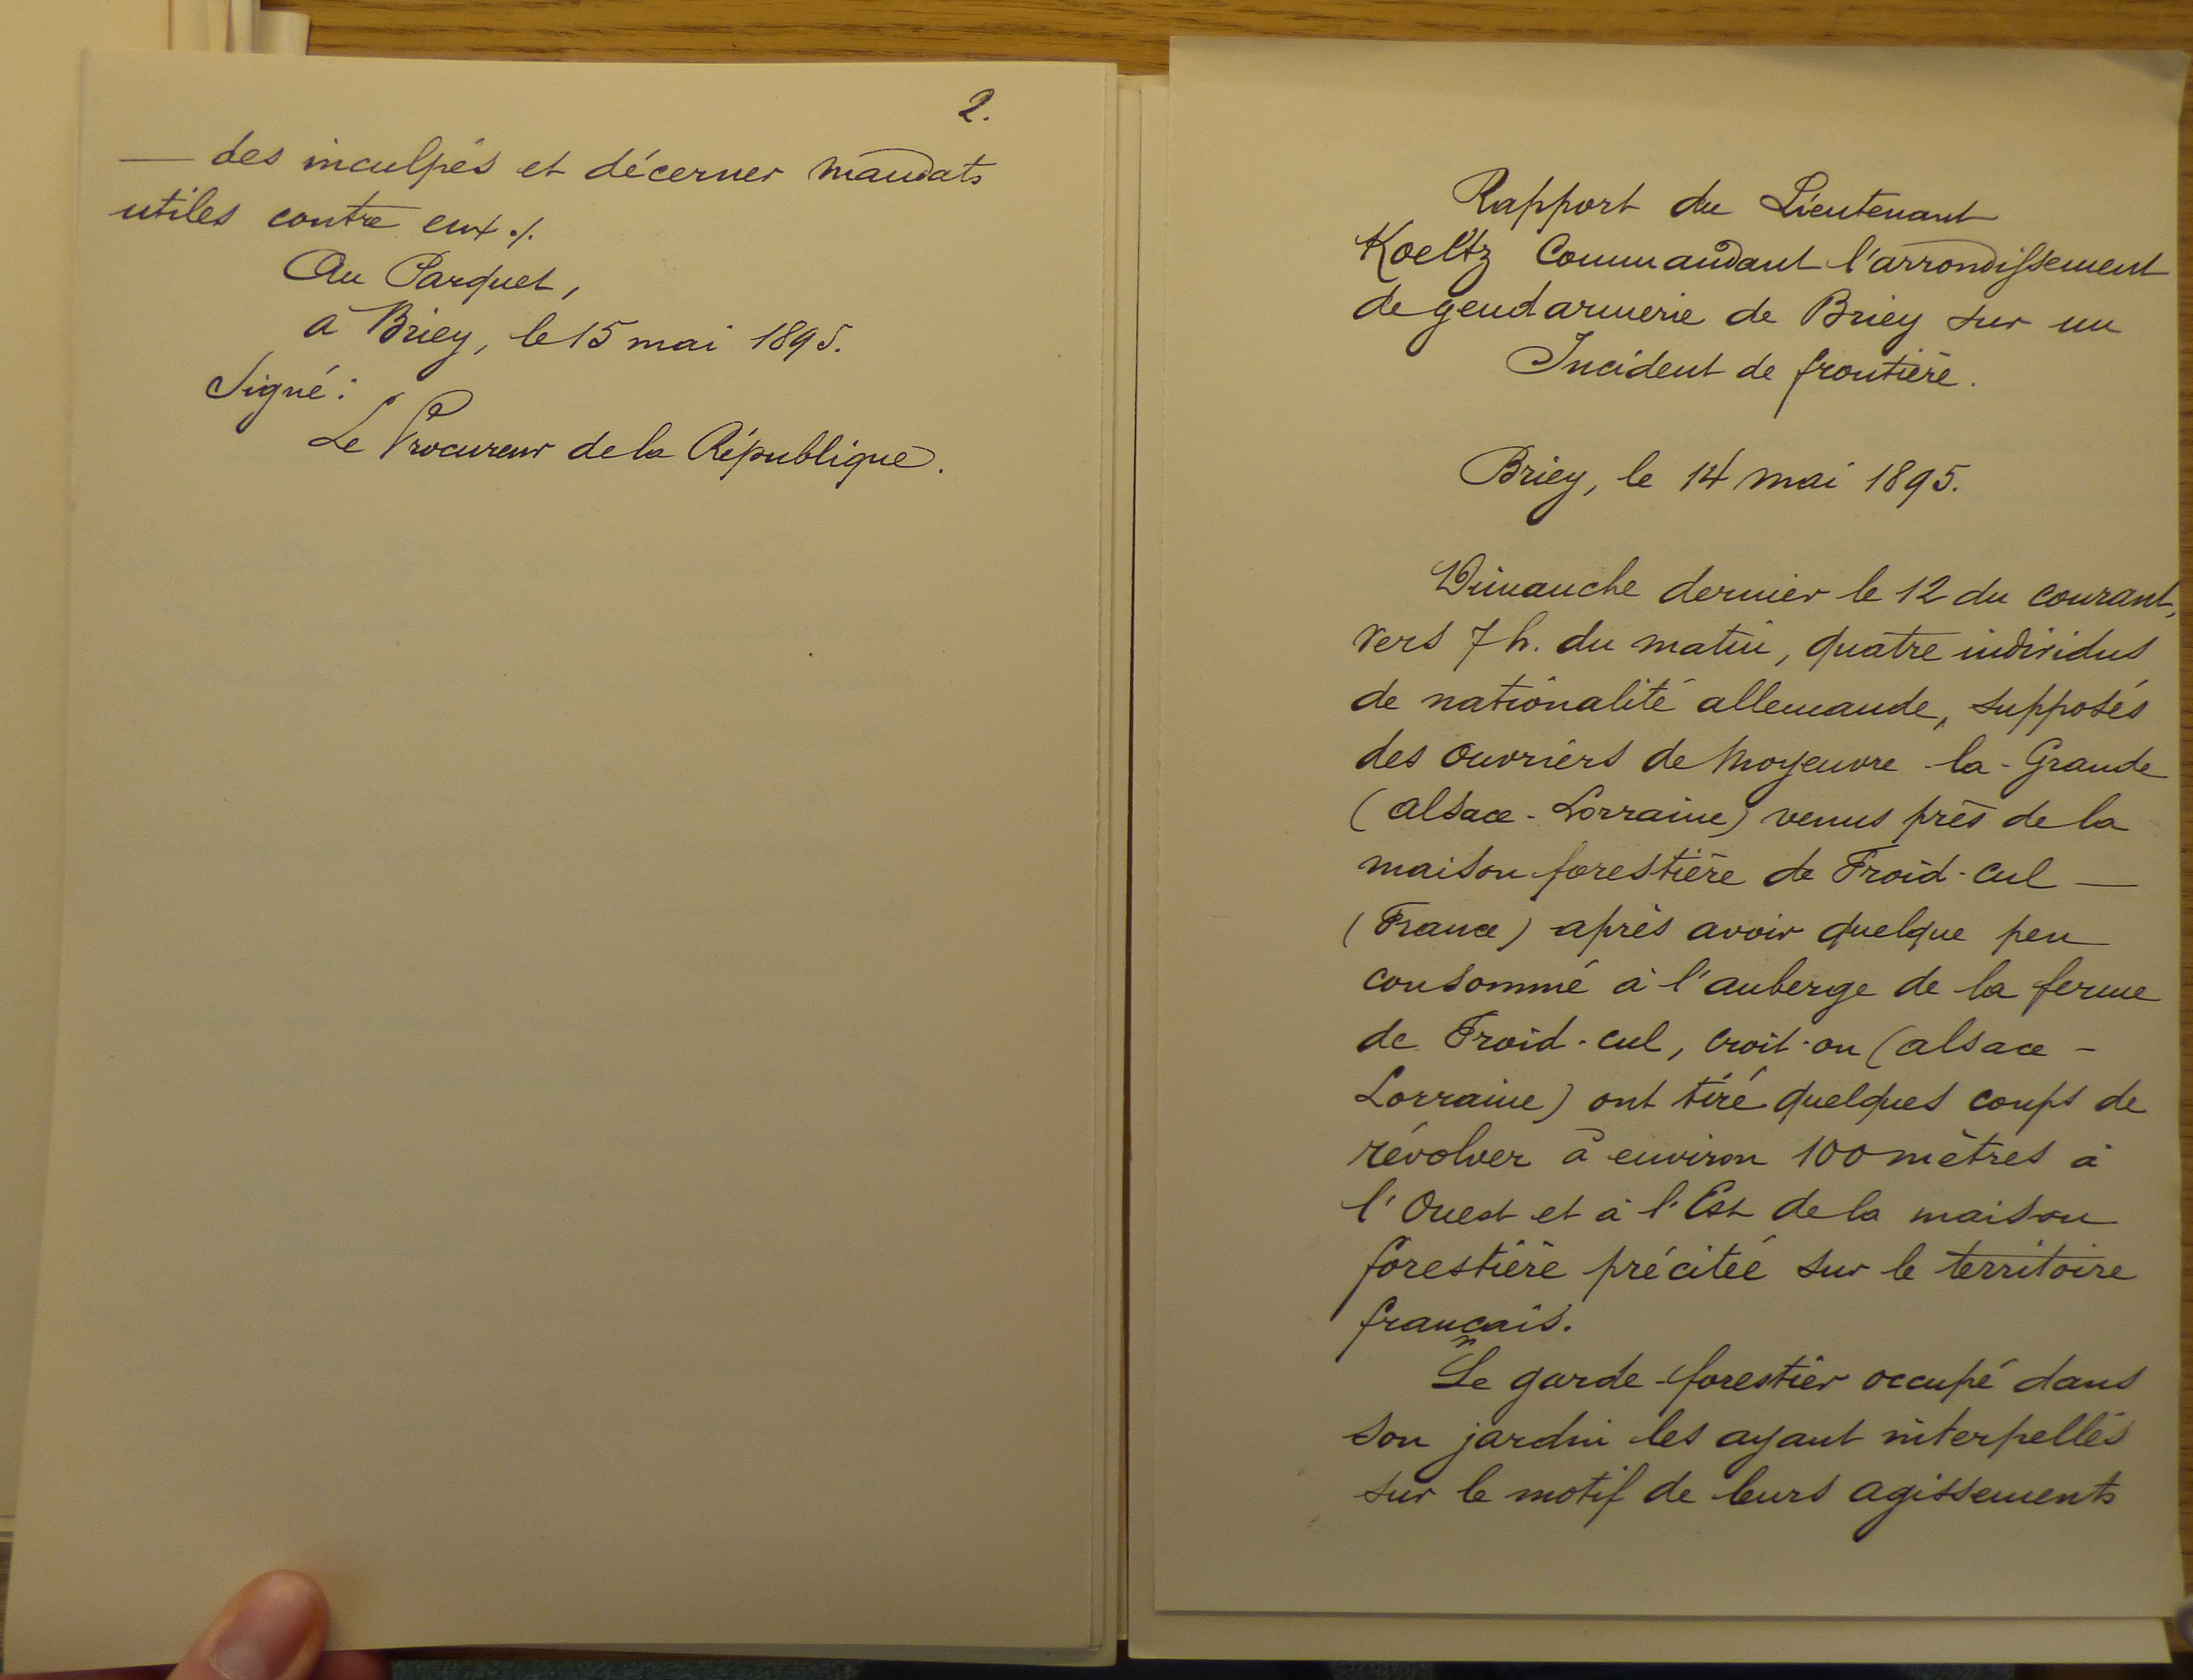 2.
— des inculpés et décerner mandats
utiles contre eux ./.
Au Parquet,
à Briey, le 15 mai 1895.
Signé :
Le Procureur de la République.
Rapport du Lieutenant
Koeltz Commandant l'arrondissement
de gendarmerie de Briey sur un
Incident de frontière.
Briey, le 14 mai 1895.
Dimanche dernier le 12 du courant,
vers 7 h. du matin, quatre individus
de nationalité allemande, supposés
des ouvriers de Moyeuvre-la-Grande
(Alsace-Lorraine) venus près de la
maison forestière de Froid-cul —
(France) après avoir quelque peu
consommé à l'auberge de la ferme
de Froid-cul, croit-on (Alsace-
Lorraine) ont tiré quelques coups de
révolver à environ 100 mètres à
l'Ouest et à l'Est de la maison
forestière précitée sur le territoire
français.
Le garde-forestier occupé dans
son jardin les ayant interpellés
sur le motif de leurs agissements